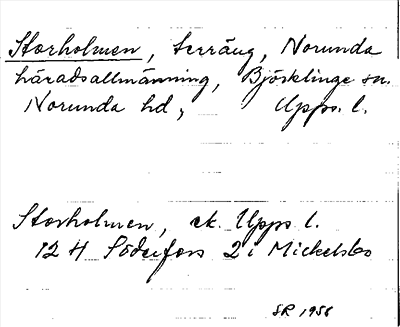 Storholmen, terräng, Norunda
häradsallmänning, Björklinge sn.
Norunda hd, Upps. l.
Storholmen, ek. Upps. l.
12 H Söderfors 2 i Mickelsbo
SR 1958